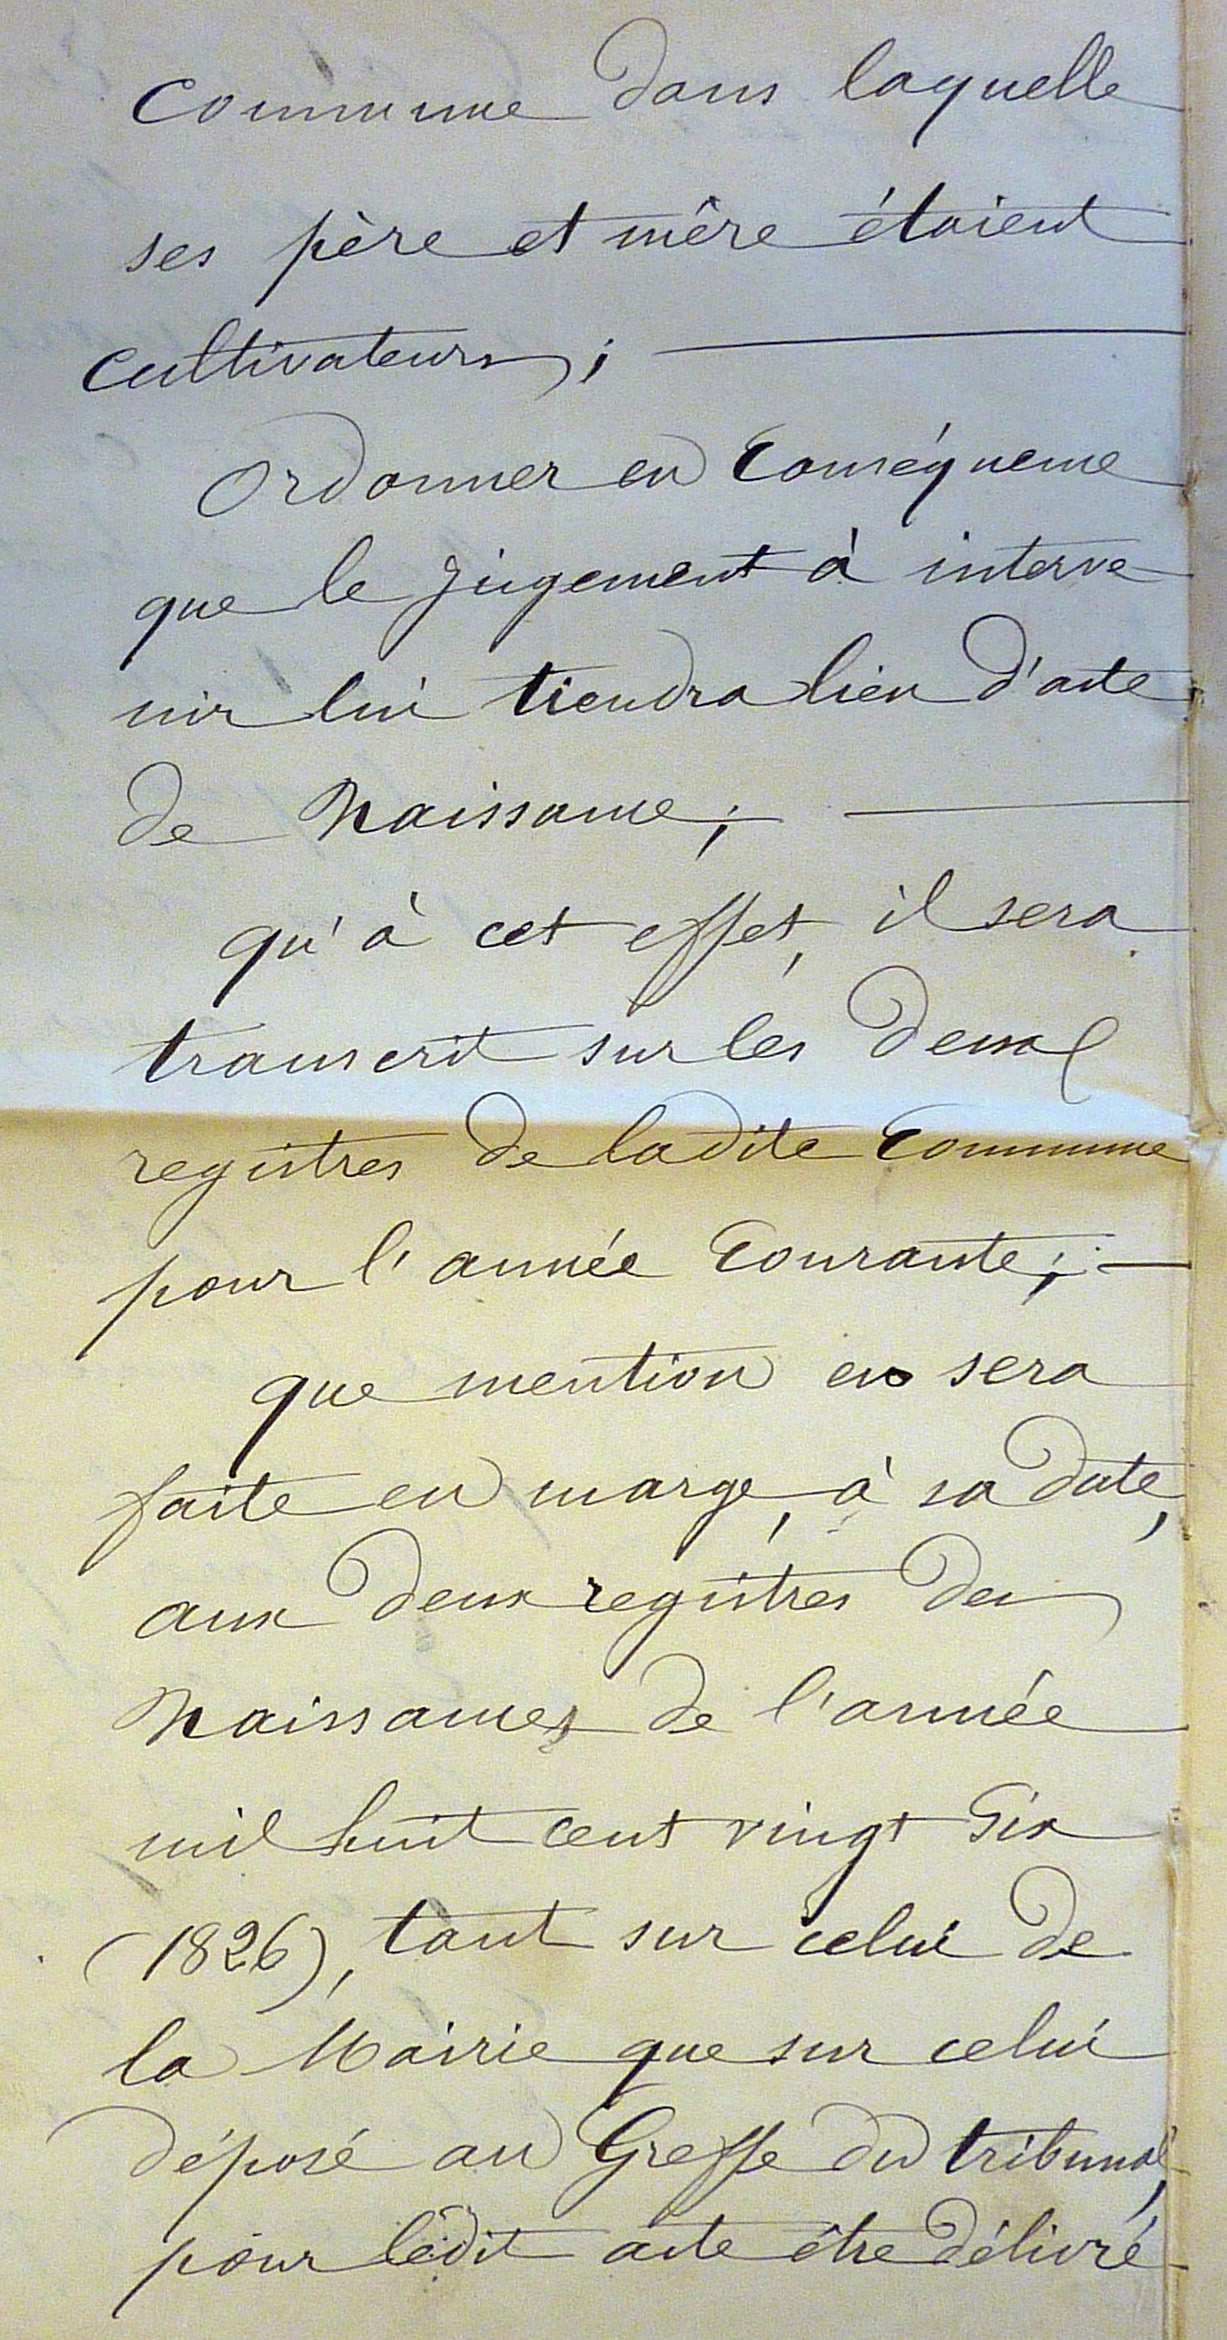 commune dans laquelle
ses père et mère étaient
cultivateurs ; —
Ordonner en Conséquence
que le Jugement à interve
nir lui tiendra lieu d'acte
de Naissance ; —
qu'à cet effet, il sera
transcrit sur les deux
registres de ladite Commune
pour l'année Courante ; —
que mention en sera
faite en marge, à sa date,
aux deux registres des
Naissances de l'année
mil huit cent vingt Six
(1826), tant sur celui de
la Mairie que sur celui
déposé au Greffe du tribunal,
pour ledit acte être délivré